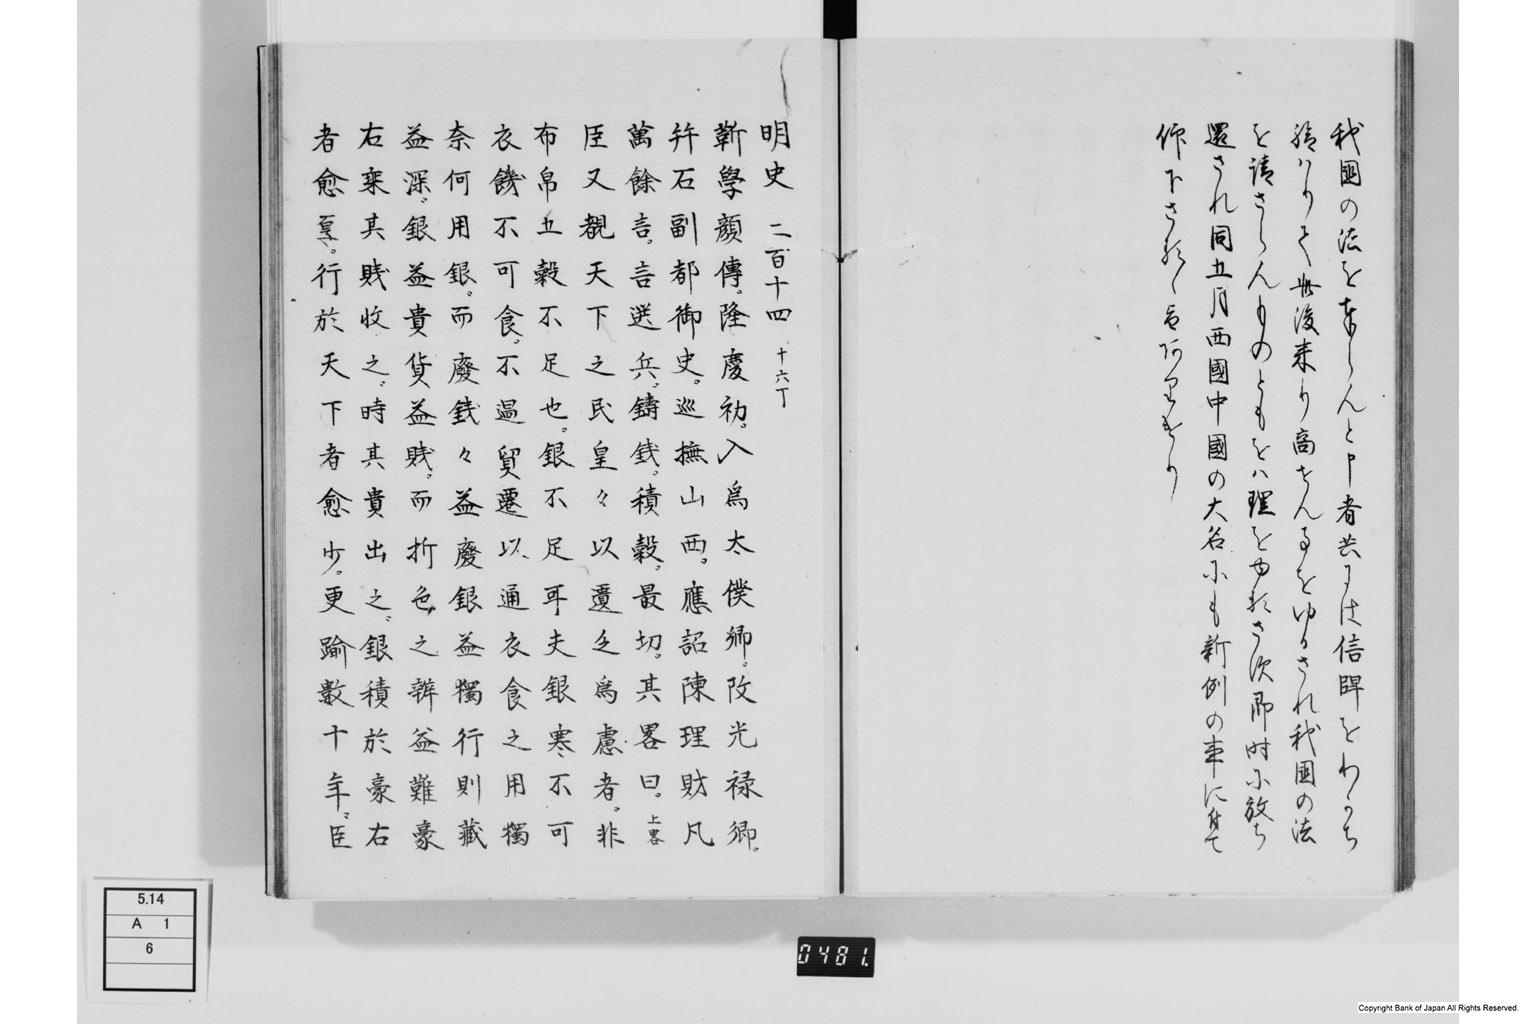 我國の法を奉らんと申者共には信牌をわかち
給はりて此後来り商せん事をゆるされ我國の法
を請さらんものともをハ理をゆるさす即时に放ち
還され同五月西國中國の大名にも新例の事に付て
仰下さる
明史 二百十四 十六丁
靳學顔傳。隆慶初。入爲太僕卿。改光禄卿。
幷石副都御史。巡撫山西。應詔陳理財凡
萬餘言。言選兵。鑄銭。積穀。最切。其畧曰。上畧
臣又覩天下之民皇々以遺乏爲慮者。非
布帛五穀不足也。銀不足耳夫銀寒不可
衣饑不可食。不過貿遷以通衣食之用獨
奈何用銀。而廢銭々益廢銀益獨行則藏
益深。銀益貴貨益賎。而折色之辨益難豪
右乗其賎收之。時其貴出之。銀積於豪右
者愈厚。行於天下者愈少。更踰數十年。臣
5.14
A 1
6
0481.
Copyright Bank of Japan All Rights Reserved.